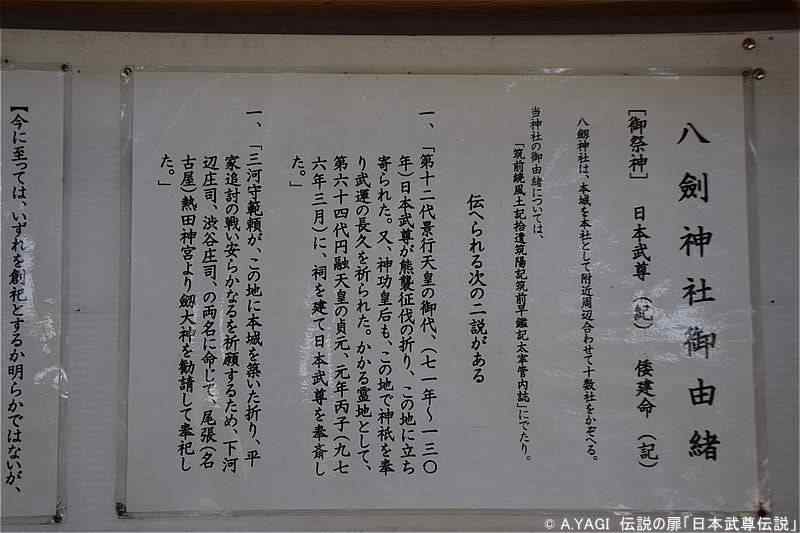 八劍神社御由緒
[御祭神] 日本武尊 (記) 倭建命 (記)
八劒神社は、本城を本社として附近周辺合わせて十数社をかぞへる。
当神社の御由緒については、
「筑前続風土記拾遺筑陽記筑前早鑑記太宰管内誌」にでたり。
伝へられる次の二説がある
一、「第十二代景行天皇の御代、(七一年～一三〇
年)日本武尊が熊襲征伐の折り、この地に立ち
寄られた。又、神功皇后も、この地で神祇を奉
り武運の長久を祈られた。かかる霊地として、
第六十四代円融天皇の貞元、元年丙子(九七
六年三月)に、祠を建て日本武尊を奉斎し
た。」
一、「三河守範頼が、この地に本城を築いた折り、平
家追討の戦い安らかなるを祈願するため、下河
辺庄司、渋谷庄司、の両名に命じて、尾張(名
古屋)熱田神宮より劔大神を勧請して奉祀し
た。」
【今に至っては、いずれを創祀とするか明らかではないが、
© A.YAGI 伝説の扉「日本武尊伝説」